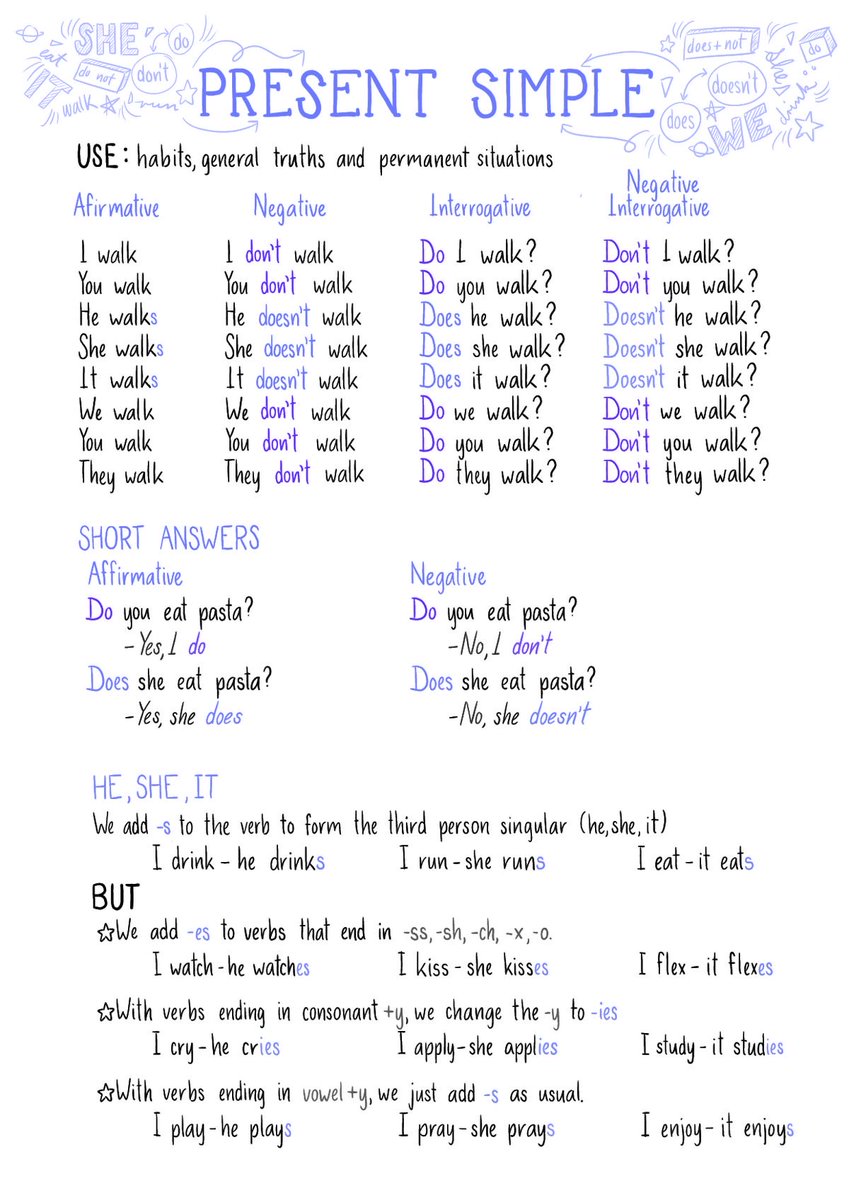 SHE
do
eat
do not
don't
IT
walk
run
does + not
do
she
doesn't
drink
does
WE
PRESENT SIMPLE
USE: habits, general truths and permanent situations
Afirmative Negative Interrogative Negative Interrogative
I walk I don't walk Do I walk? Don't I walk?
You walk You don't walk Do you walk? Don't you walk?
He walks He doesn't walk Does he walk? Doesn't he walk?
She walks She doesn't walk Does she walk? Doesn't she walk?
It walks It doesn't walk Does it walk? Doesn't it walk?
We walk We don't walk Do we walk? Don't we walk?
You walk You don't walk Do you walk? Don't you walk?
They walk They don't walk Do they walk? Don't they walk?
SHORT ANSWERS
Affirmative Negative
Do you eat pasta? Do you eat pasta?
-Yes, I do -No, I don't
Does she eat pasta? Does she eat pasta?
-Yes, she does -No, she doesn't
HE, SHE, IT
We add -s to the verb to form the third person singular (he, she, it)
I drink - he drinks I run - she runs I eat - it eats
BUT
☆We add -es to verbs that end in -ss, -sh, -ch, -x, -o.
I watch - he watches I kiss - she kisses I flex - it flexes
☆With verbs ending in consonant +y, we change the -y to -ies
I cry - he cries I apply - she applies I study - it studies
☆With verbs ending in vowel +y, we just add -s as usual.
I play - he plays I pray - she prays I enjoy - it enjoys